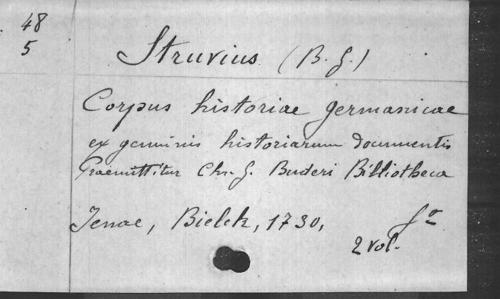 48
5
Struvius (B. G.)
Corpus historiae germanicae
ex genuinis historiarum documentis
Praemittitur Chr. G. Buderi Bibliotheca
Jenae, Bielck, 1730,
f°
2 vol.